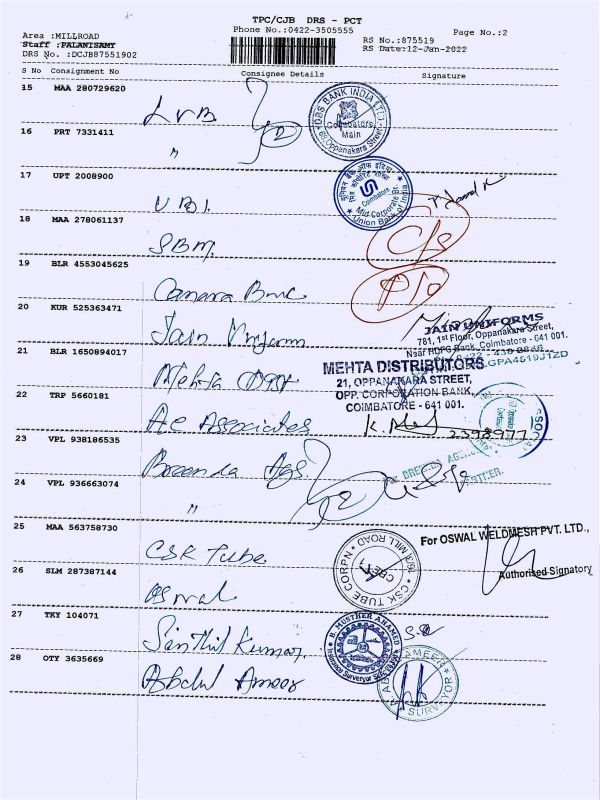 TPC/CJB DRS - PCT
Phone No.:0422-3505555
Page No.:2
Area :MILLROAD
Staff :PALANISAMY
DRS No. :DCJB87551902
RS No.:875519
RS Date:12-Jan-2022
S No Consignment No Consignee Details Signature
15 MAA 280729620
LVB
DBS BANK INDIA LTD
Coimbatore
Main
Oppanakara Street
16 PRT 7331411
"
17 UPT 2008900
UBI.
Coimbatore
Mid Corporate Br.
Union Bank of India
18 MAA 278061137
SBM
C/S
PTO
19 BLR 4553045625
Canara Bmc
20 KUR 525363471
Jain Uniform
JAIN UNIFORMS
781, 1st Floor, Oppanakara Street,
Near HDFC Bank, Coimbatore - 641 001.
21 BLR 1650894017
Mehta Dist
MEHTA DISTRIBUTORS
21, OPPANAKARA STREET,
OPP. CORPORATION BANK,
COIMBATORE - 641 001.
22 TRP 5660181
A.C Associates
23 VPL 938186535
Breenda Ags.
24 VPL 936663074
"
25 MAA 563758730
CSK Tube
CSK TUBE CORPN
MILL ROAD
CBE-1
For OSWAL WELDMESH PVT. LTD.,
Authorised Signatory
26 SLM 287387144
Oswal
27 TKY 104071
Senthil Kumar
B. MUSTHER AHAMED
28 OTY 3635669
Abdul Ameer